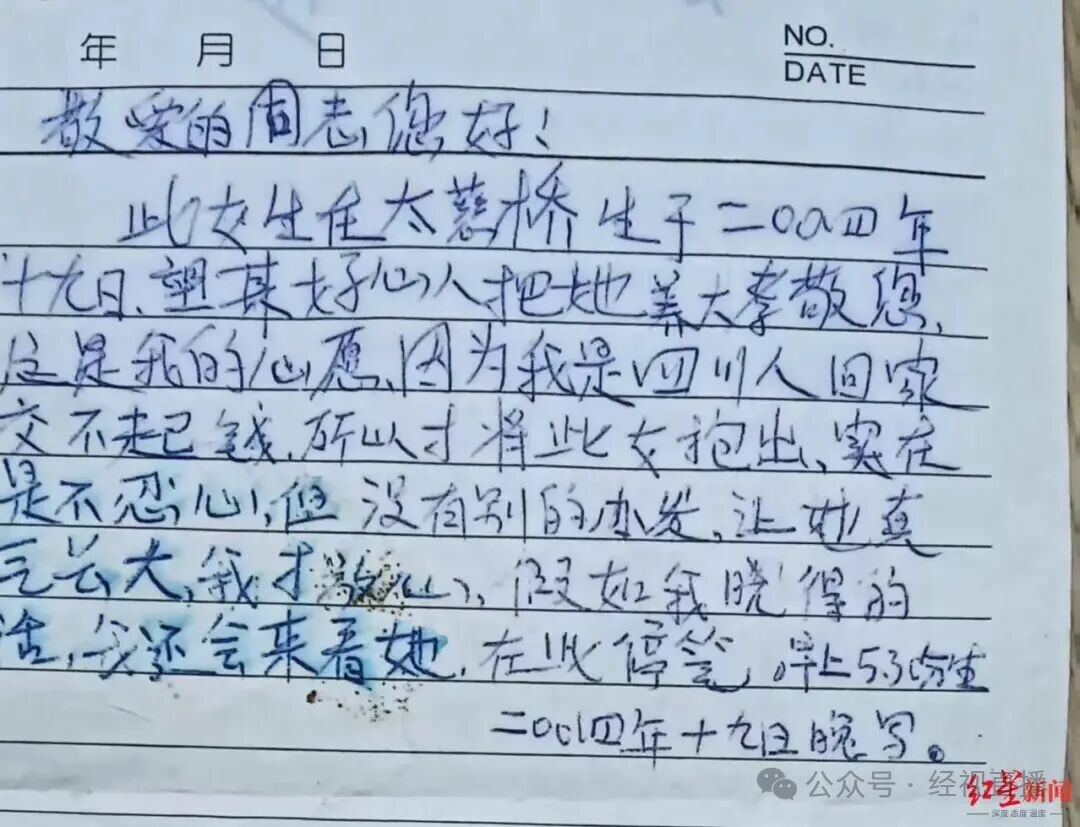 年 月 日
NO.
DATE
敬爱的同志,您好!
此女生在太慈桥生于二00四年
十九日、望某好心人把她养大孝敬您、
这是我的心愿、因为我是四川人回家
交不起已钱、所以才将此女抱出、实在
是不忍心,但没有别的办发、让她真
长大,我才放心、假如我晓得的
话,我还会来看她、在此停笔,早上5.30分生
二00四年十九日晚写。
公众号·经视直播
红星新闻
深度 态度 温度